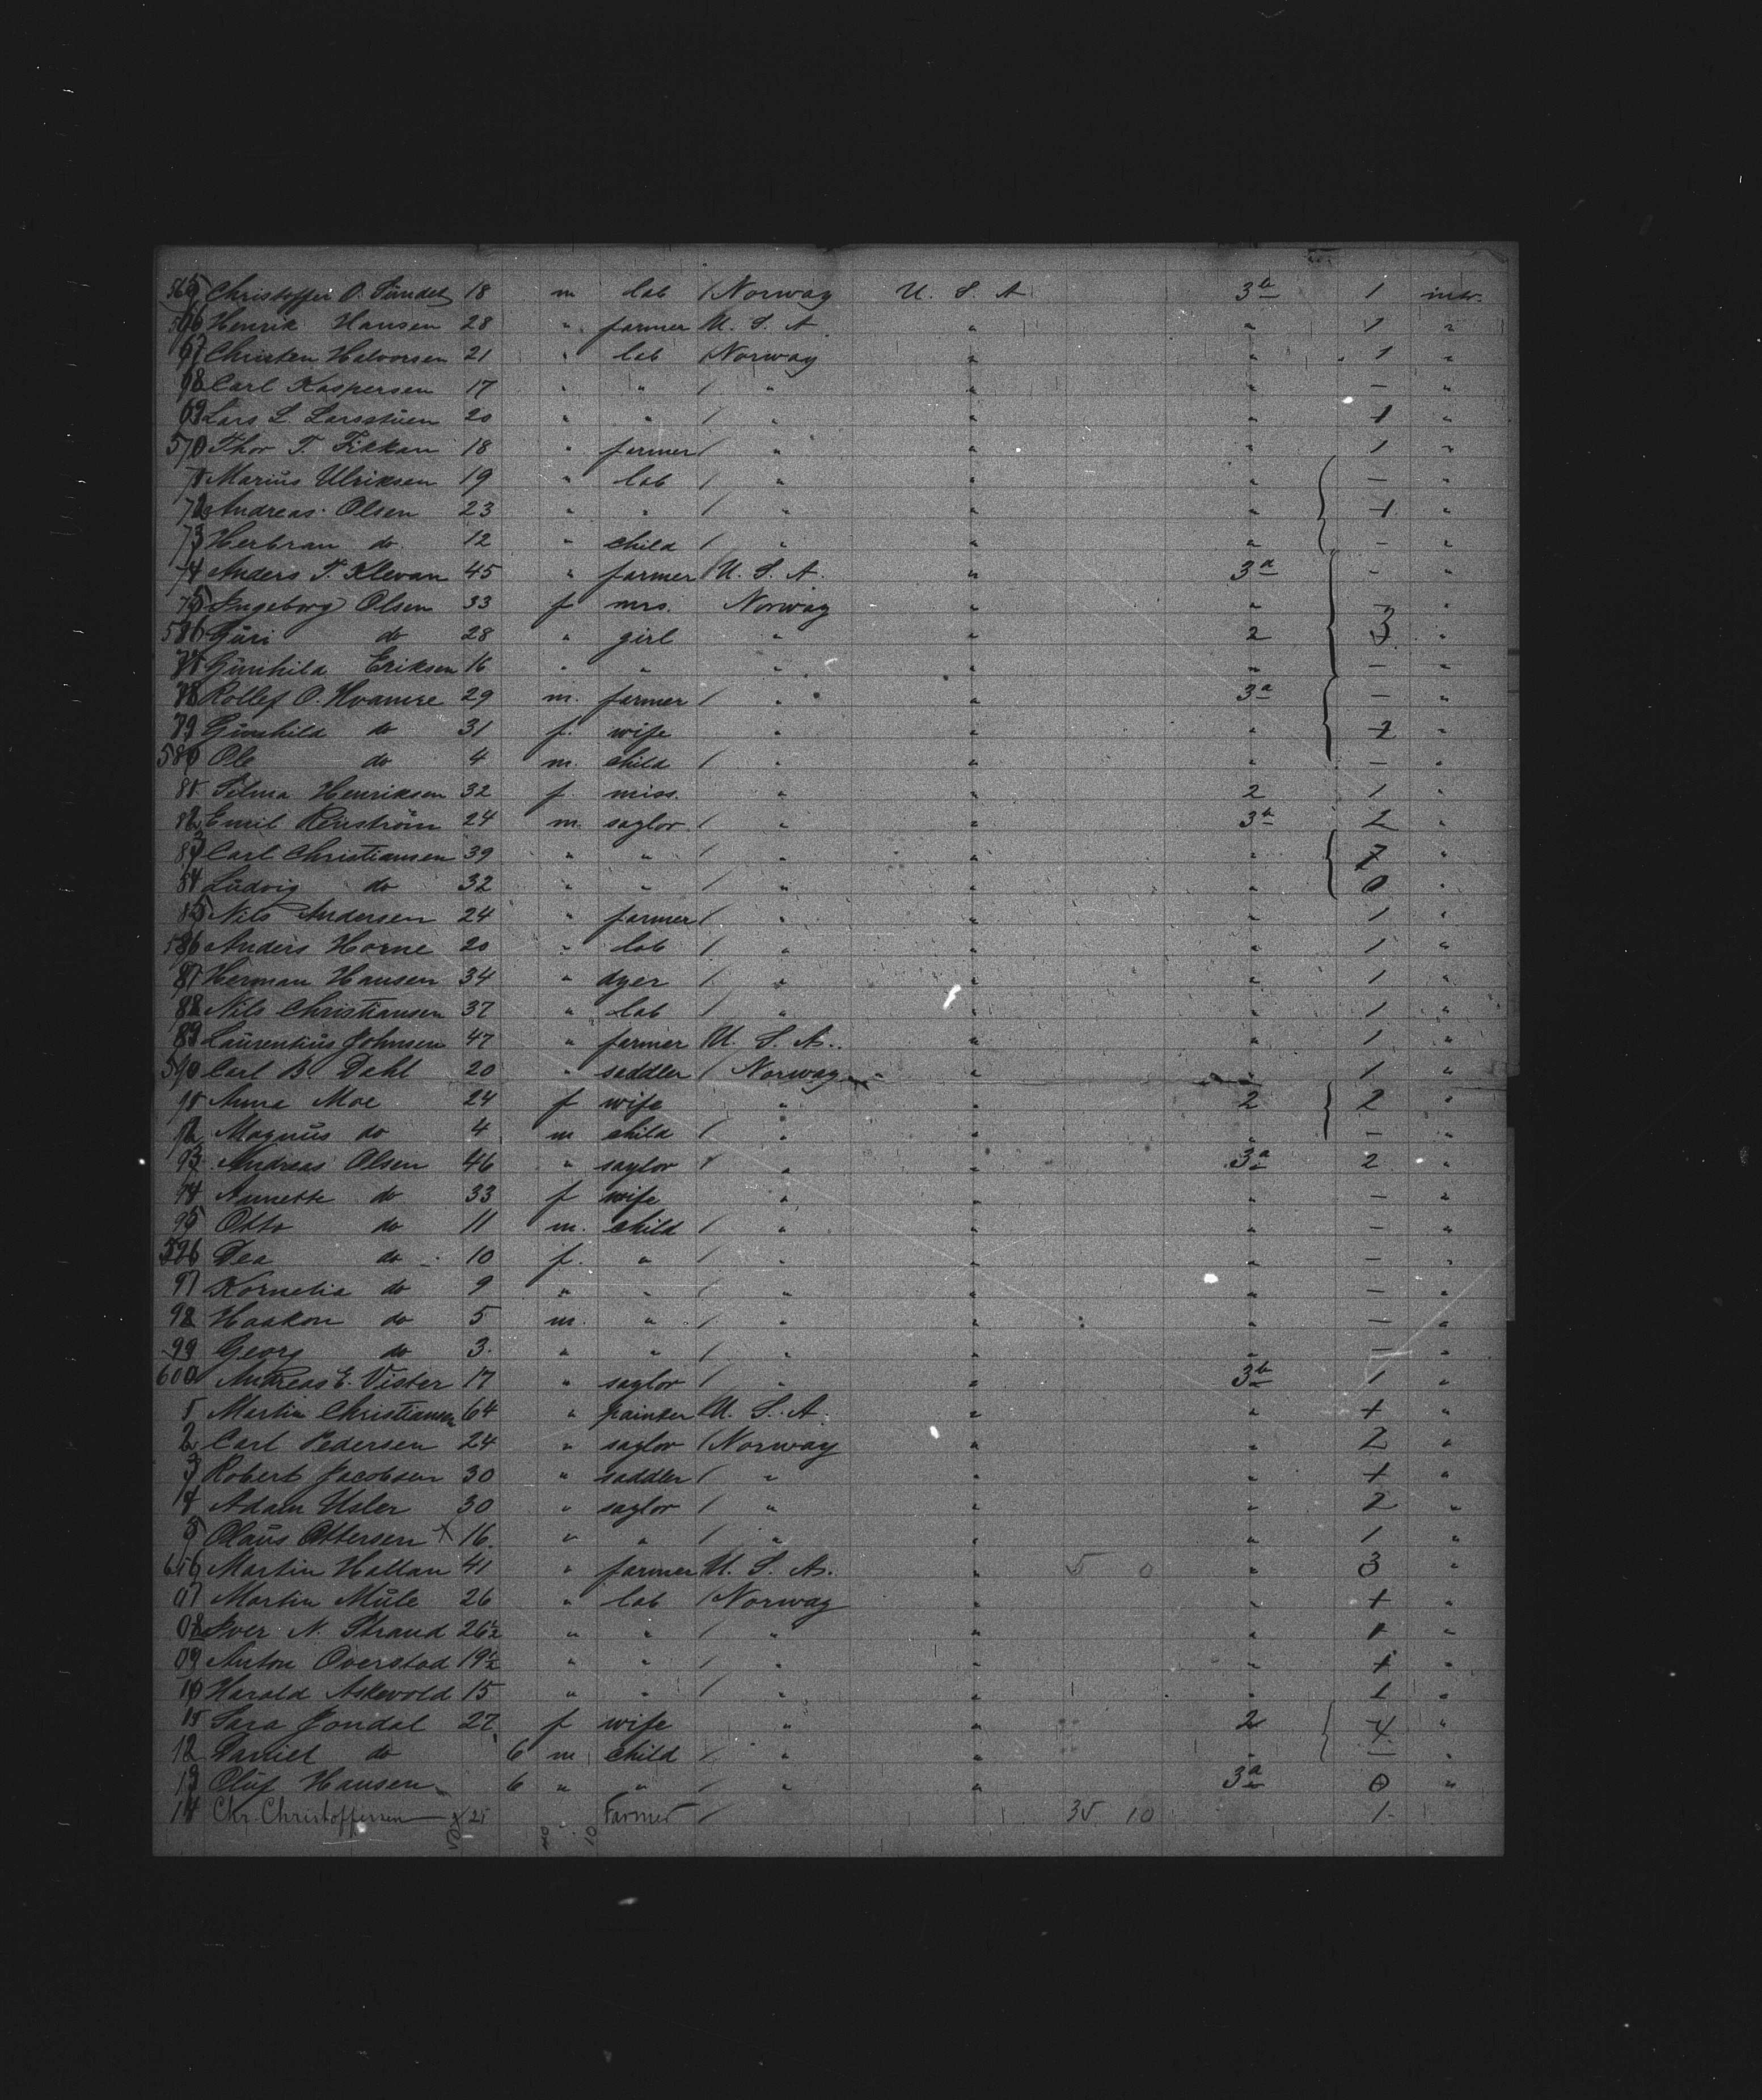 565 Christoffer O. Sundet 18 m lab / Norway U. S. A 3b 1 intr.
566 Henrik Hansen 28 " farmer U. S. A " " 1 "
67 Christen Halvorsen 21 " lab / Norway " " 1 "
68 Carl Kaspersen 17 " " / " " " — "
69 Lars L. Larsstuen 20 " " / " " " 1 "
570 Thor T. Fikkan 18 " farmer / " " " 1 "
71 Marius Ulriksen 19 " lab / " " " — "
72 Andreas Olsen 23 " " / " " " 1 "
73 Herbran do 12 " child / " " " — "
74 Anders T. Klevan 45 " farmer / U. S. A. " 3a - "
75 Ingeborg Olsen 33 f mrs. Norway " " — "
576 Guri do 28 " girl " " 2 3 "
77 Gunhild Eriksen 16 " " " " " — "
78 Rollef O. Hvamre 29 m. farmer / " " 3a — "
79 Gunhild do 31 f. wife " " " 2 "
580 Ole do 4 m. child / " " " — "
81 Selma Henriksen 32 f. miss. " " 2 1 "
82 Emil Renström 24 m. saylor / " " 3b 2 "
83 Carl Christiansen 39 " " / " " " 7 "
84 Ludvig do 32 " " / " " " 0 "
85 Nils Andersen 24 " farmer / " " " 1 "
586 Anders Horne 20 " lab / " " " 1 "
87 Herman Hansen 34 " dyer / " " " 1 "
88 Nils Christiansen 37 " lab / " " " 1 "
89 Laurentius Johnsen 47 " farmer U. S. A. " " 1 "
590 Carl B. Dahl 20 " saddler / Norway " " 1 "
91 Anna Moe 24 f wife " " 2 2 "
92 Magnus do 4 m child / " " " — "
93 Andreas Olsen 46 " saylor / " " 3a 2 "
94 Annette do 33 f wife " " " — "
95 Otto do 11 m. child / " " " — "
596 Dea do 10 f. " / " " " — "
97 Kornelia do 9 " " / " " " — "
98 Haakon do 5 m. " / " " " — "
99 Georg do 3. " " / " " " — "
600 Andreas E. Vister 17 " saylor / " " 3b 1 "
1 Martin Christiansen 64 " painter U. S. A. " " 1 "
2 Carl Pedersen 24 " saylor / Norway " " 2 "
3 Robert Jacobsen 30 " saddler / " " " 1 "
4 Adam Usler 30 " saylor / " " " 2 "
5 Olaus Ottersen x 16. " " / " " " 1 "
606 Martin Hallan 41 " farmer U. S. A. " 5 0 " 3 "
07 Martin Mule 26 " lab / Norway " " 1 "
08 Iver N. Strand 26½ " " / " " " 1 "
09 Anton Overstad 19½ " " / " " " 1 "
10 Harald Askevold 15 " " / " " " 1 "
11 Sara Jondal 27 f wife " " 2 4 "
12 Daniel do 6 m child / " " " — "
13 Oluf Hansen 6 " " / " " 3a 0 "
14 Chr. Christoffersen x 25 " Farmer / 35 10 1
10